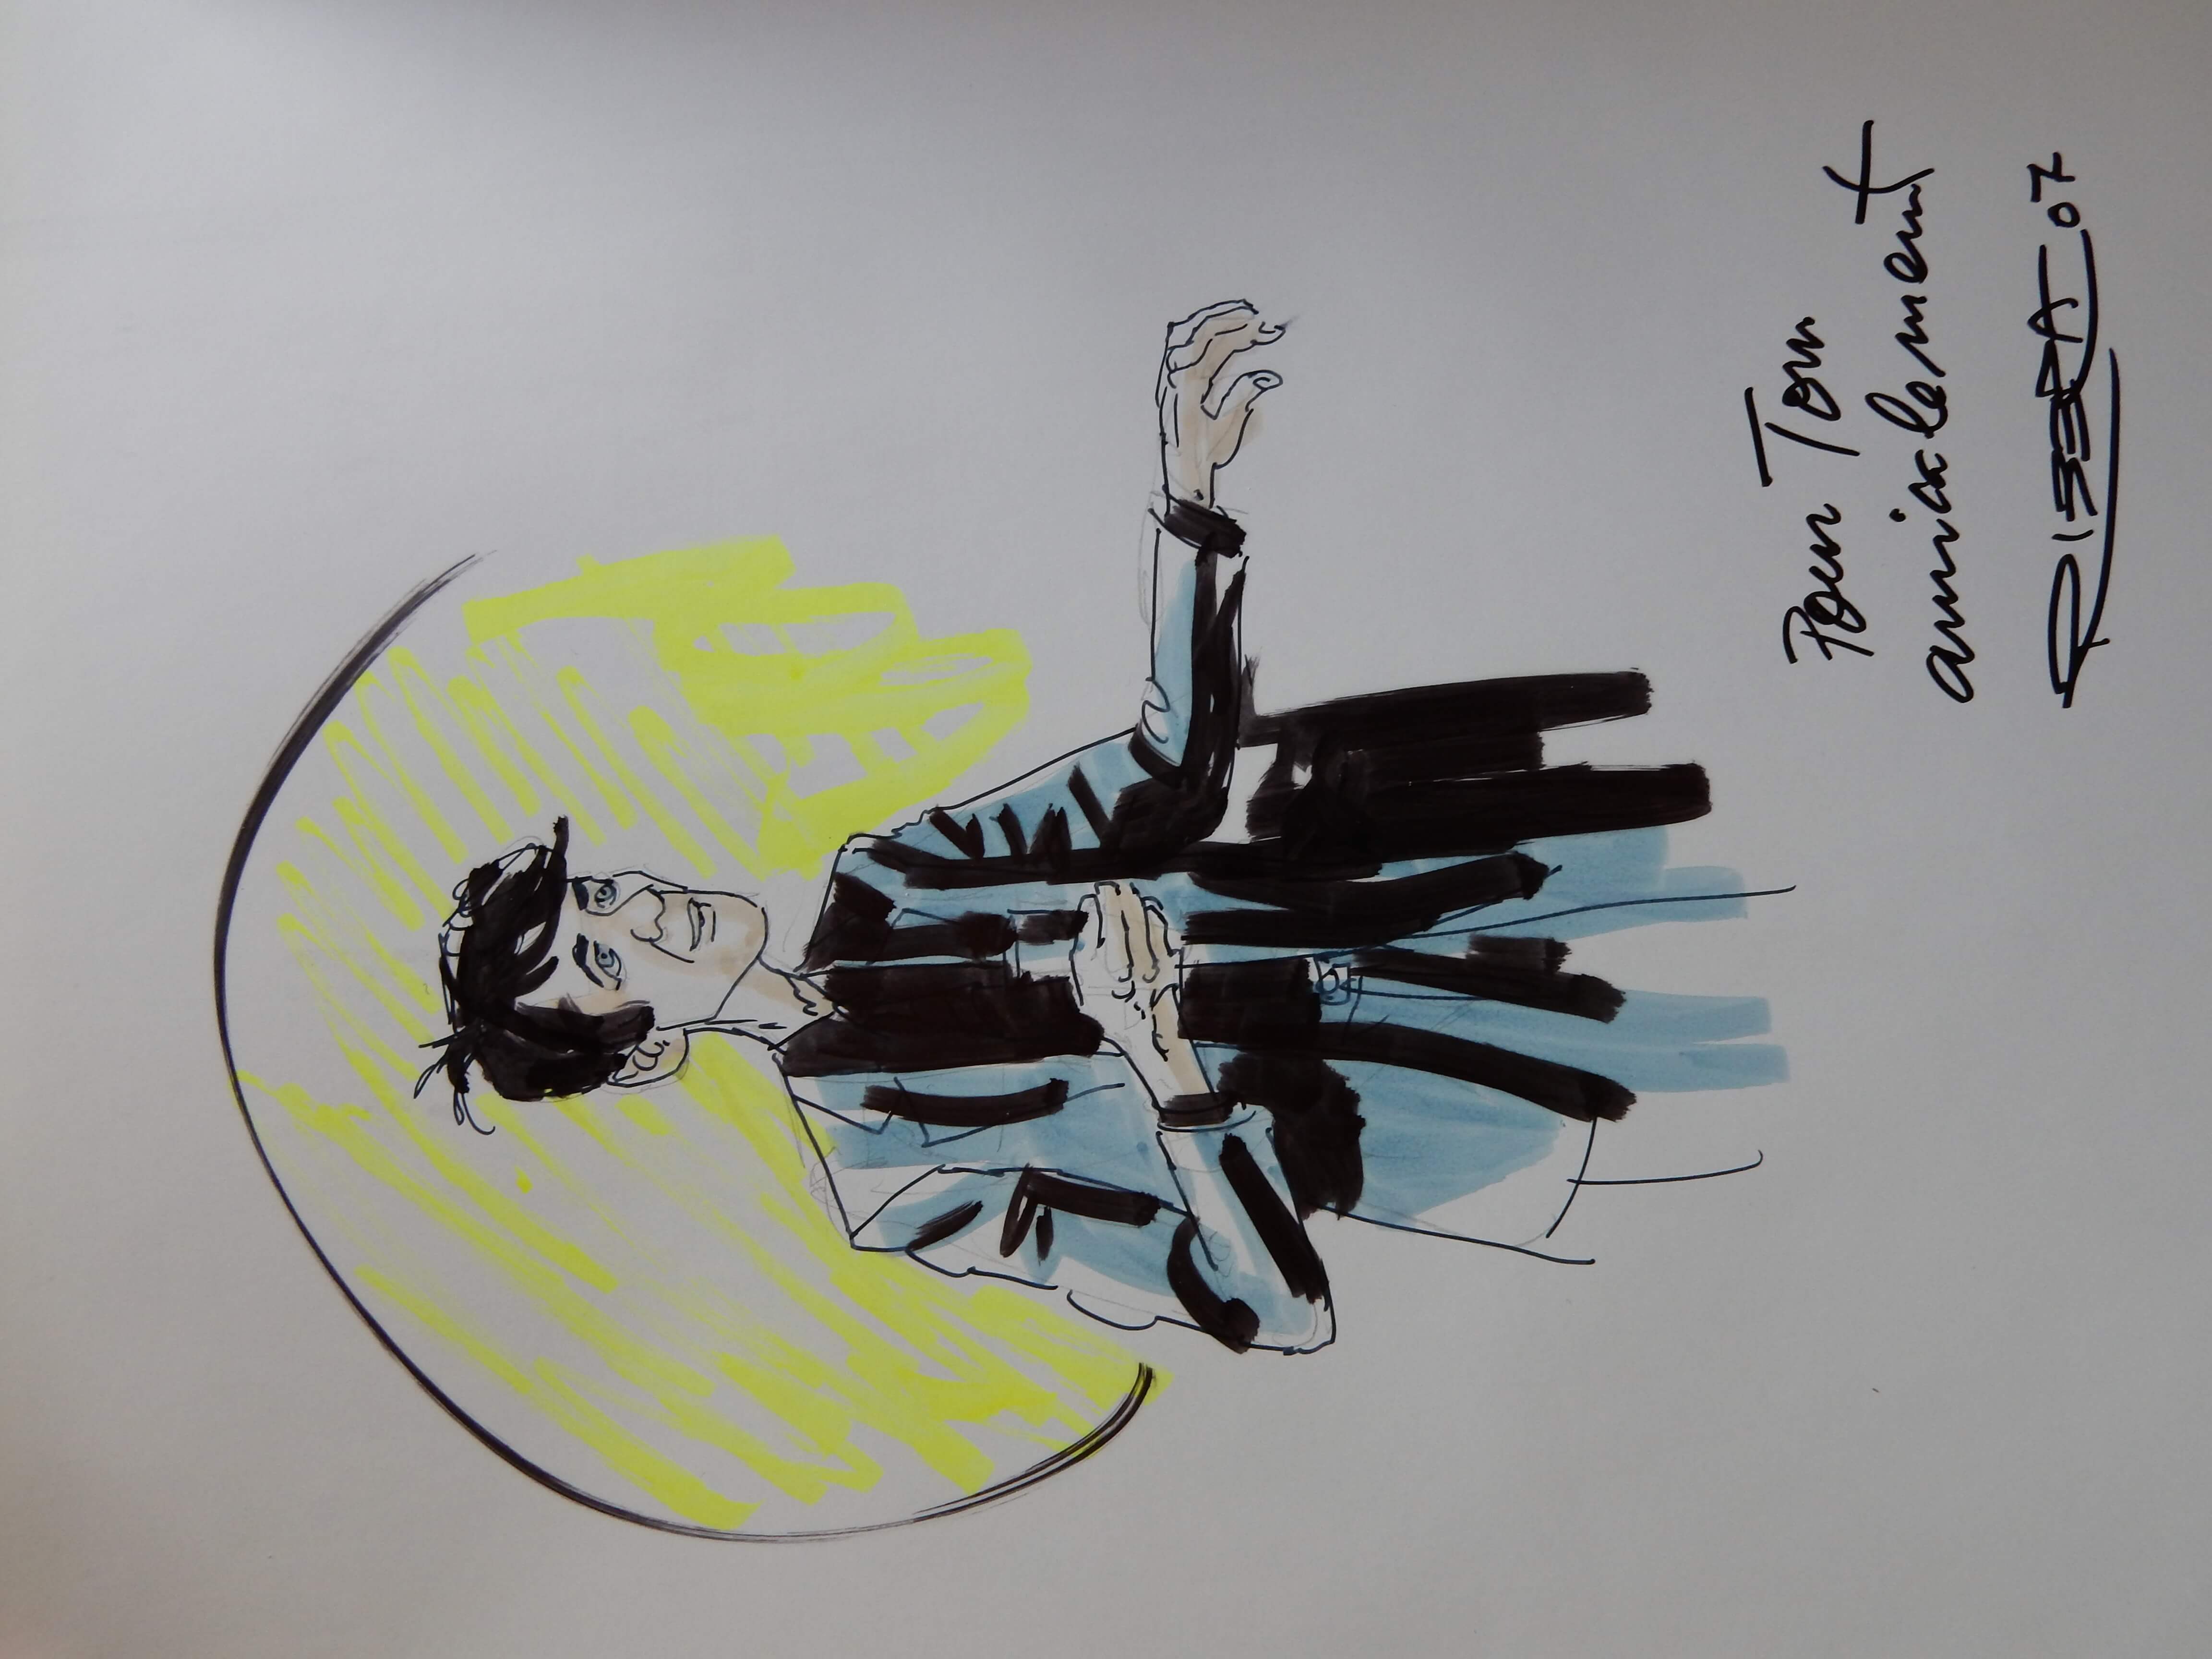 Pour Tom
amicalement
RIBERA 07